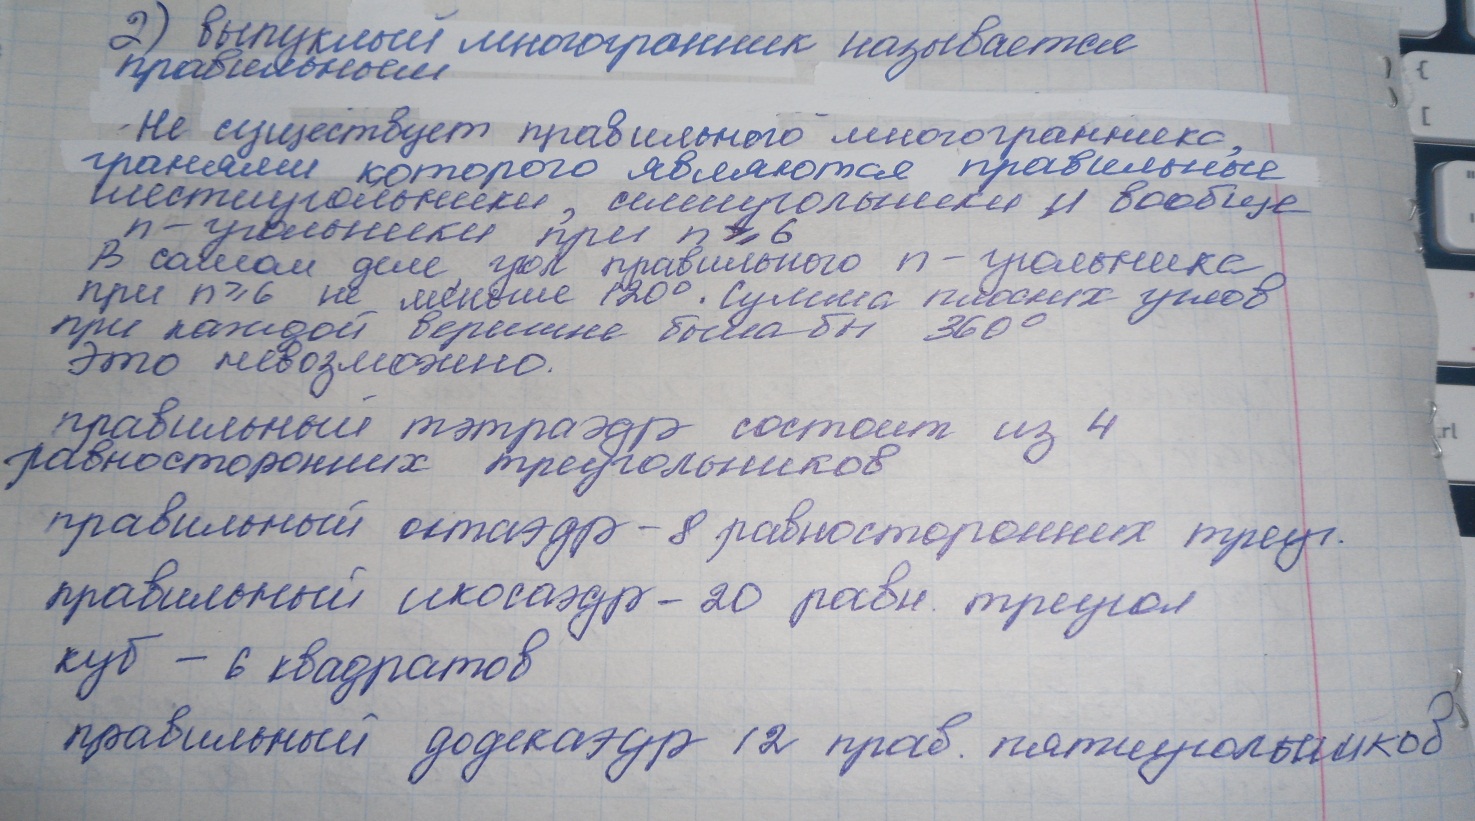 2) выпуклый многогранник называется
правильным
Не существует правильного многогранника,
гранями которого являются правильные
шестиугольники, семиугольники и вообще
n-угольники при n ≥ 6
В самом деле, угол правильного n-угольника
при n ≥ 6 не меньше 120°. Сумма плоских углов
при каждой вершине была бы 360°
Это невозможно.
правильный тэтраэдр состоит из 4
равносторонних треугольников
правильный октаэдр - 8 равносторонних треуг.
правильный икосаэдр - 20 равн. треугол
куб - 6 квадратов
правильный додекаэдр 12 прав. пятиугольников
{
[
rl